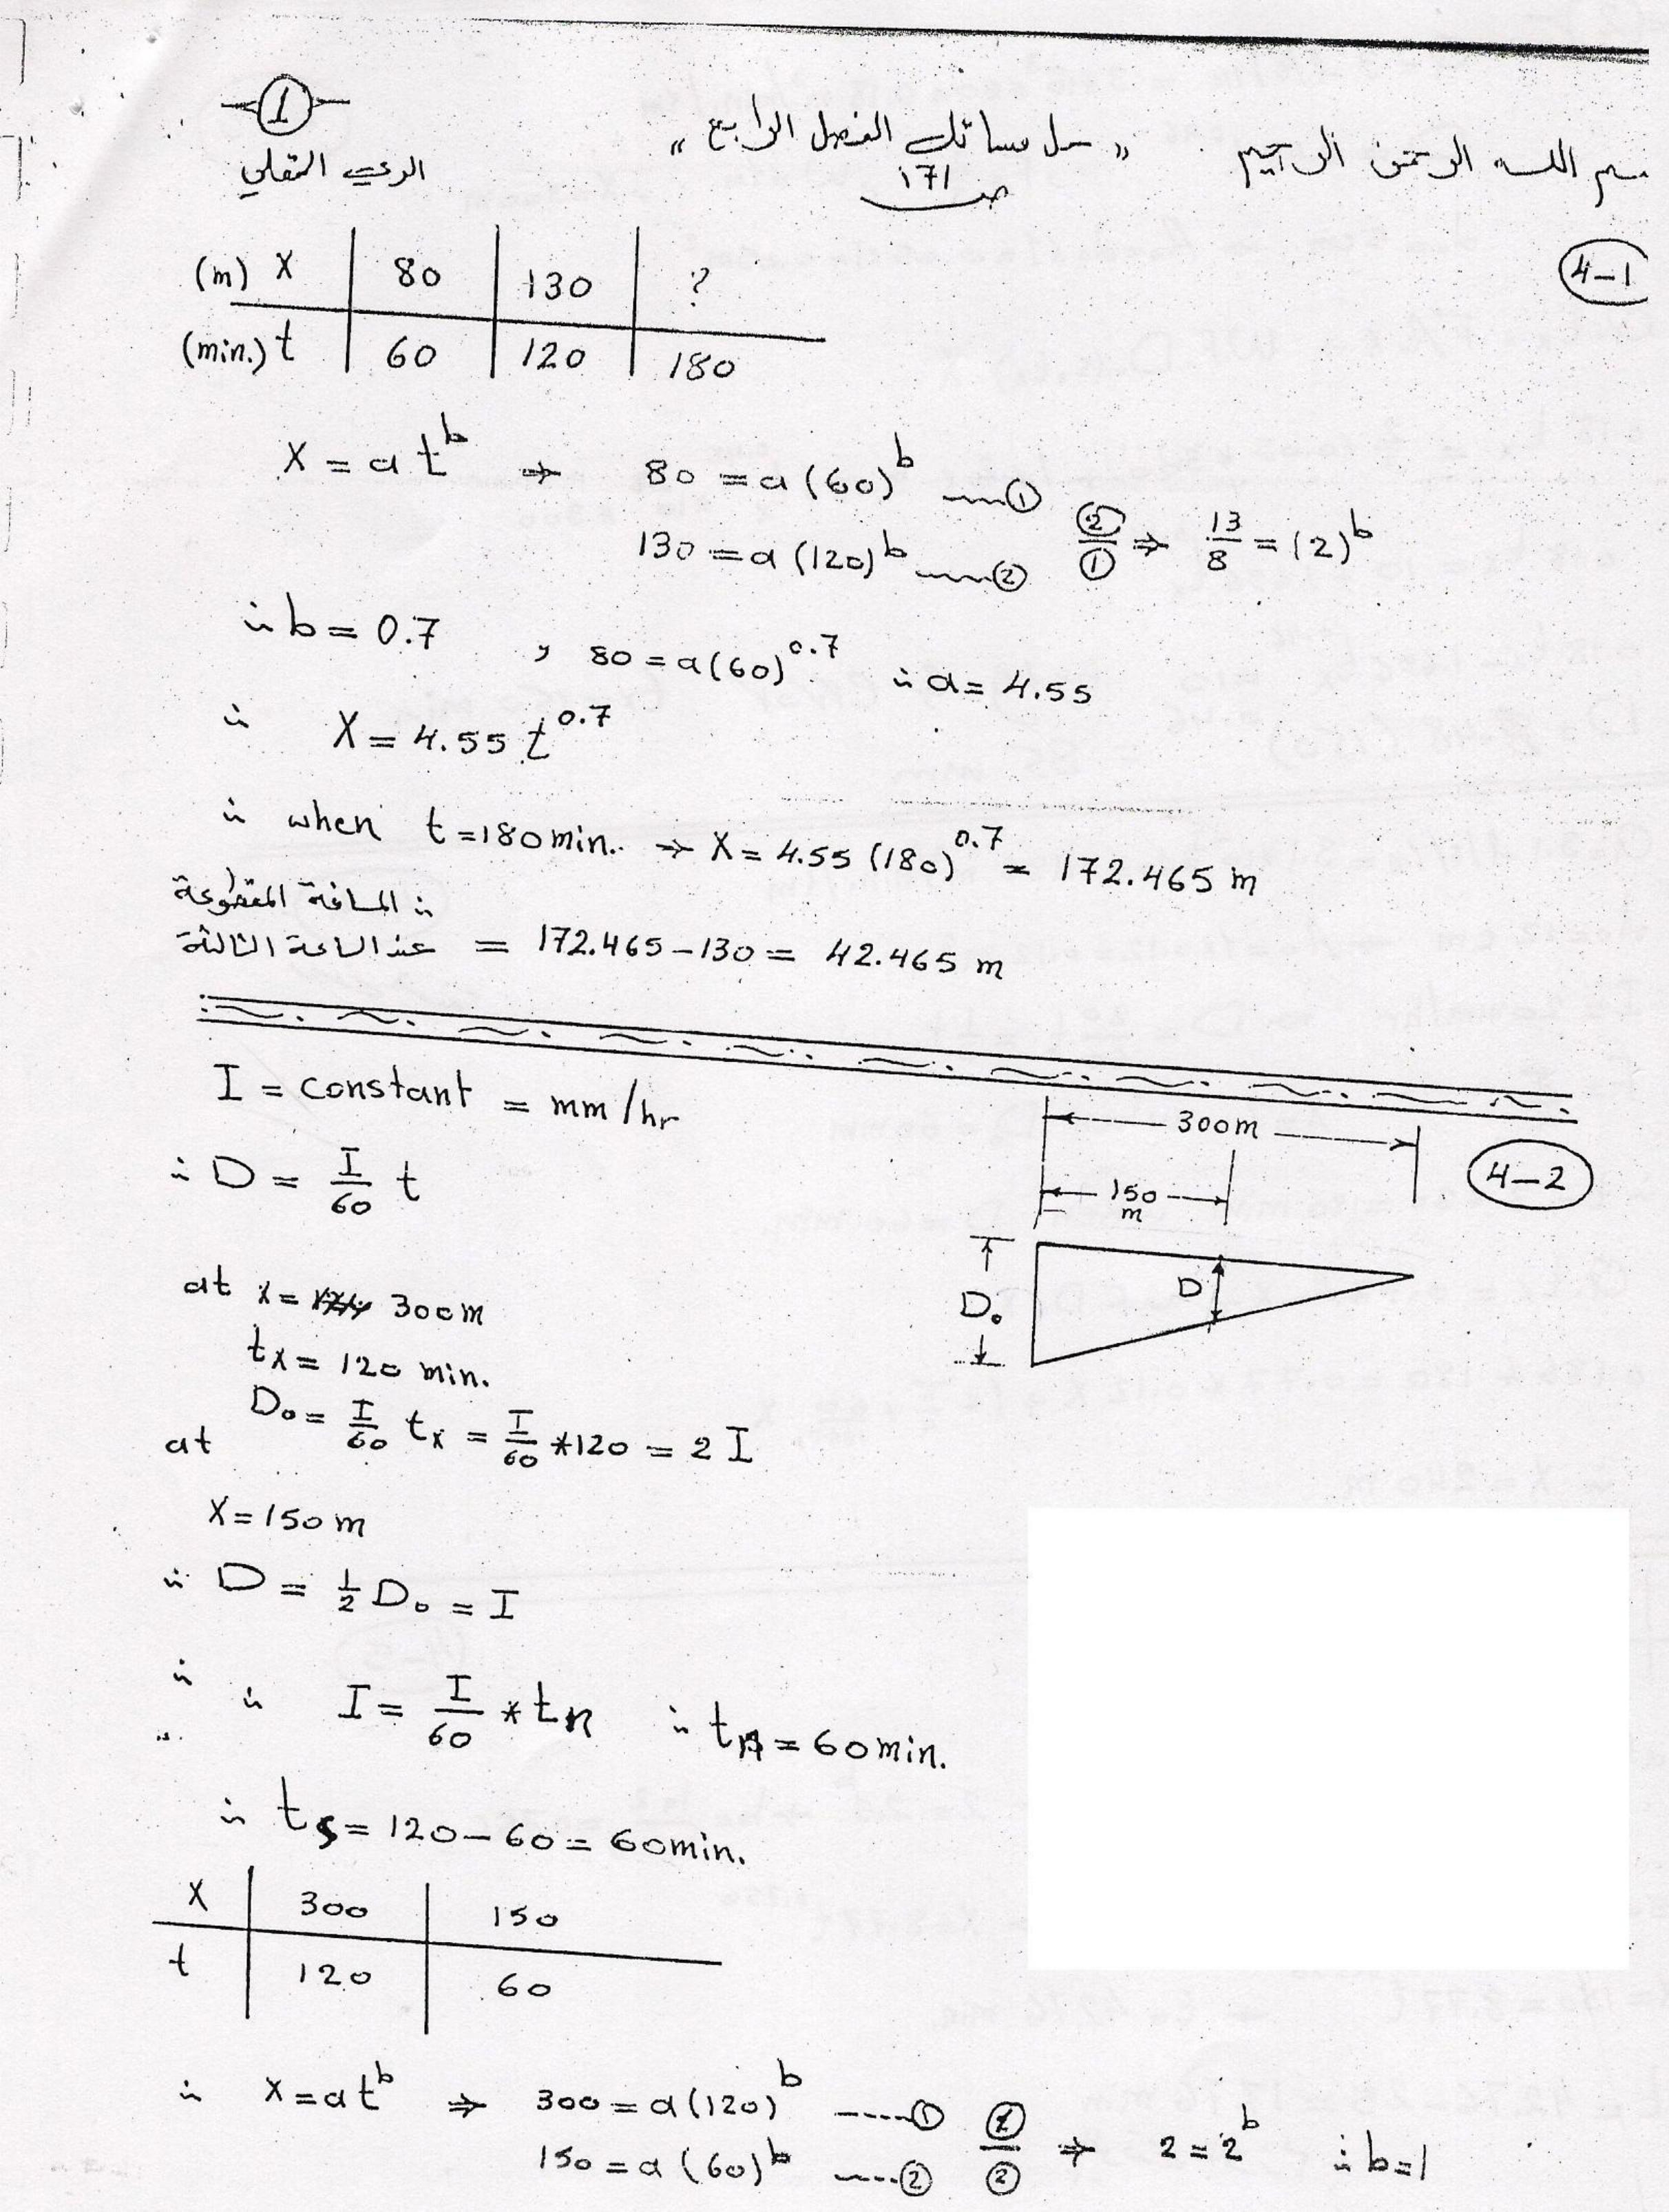 بسم الله الرحمن الرحيم
" حل مسائل الفصل الرابع "
ص ١٧١
1
الري الحقلي
4-1
(m) X | 80 | 130 | ?
(min.) t | 60 | 120 | 180
X = a t^b ⇒ 80 = a (60)^b ......①
130 = a (120)^b ......② ②/① ⇒ 13/8 = (2)^b
∴ b = 0.7 , 80 = a (60)^0.7 ∴ a = 4.55
∴ X = 4.55 t^0.7
∴ when t = 180 min. ⇒ X = 4.55 (180)^0.7 = 172.465 m
∴ المسافة المقطوعة
عند الساعة الثالثة = 172.465 - 130 = 42.465 m
4-2
I = constant = mm/hr
∴ D = I/60 t
300m
150 m
D₀
D
at x = 300m
tx = 120 min.
D₀ = I/60 tx = I/60 *120 = 2 I
at
X = 150 m
∴ D = 1/2 D₀ = I
∴ ∴ I = I/60 * tn ∴ tn = 60 min.
∴ ts = 120 - 60 = 60 min.
X | 300 | 150
t | 120 | 60
∴ X = a t^b ⇒ 300 = a (120)^b ----① ①/② ⇒ 2 = 2^b ∴ b = 1
150 = a (60)^b ----②